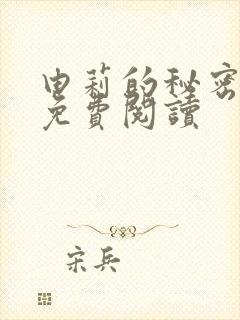 申莉的秘密
免費閱讀
宋兵